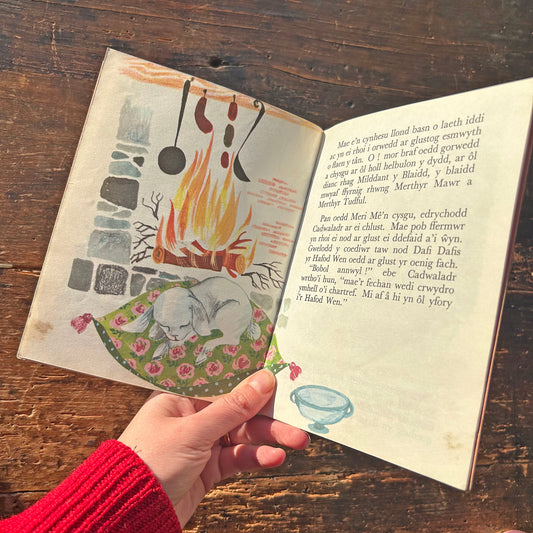 Mae e'n cynhesu llond basn o laeth iddi
ac yn ei rhoi i orwedd ar glustog esmwyth
o flaen y tân. O! mor braf oedd gorwedd
a chysgu ar ôl helbulon y dydd, ar ôl
dianc rhag Milddant y Blaidd, y blaidd
mwyaf ffyrnig rhwng Merthyr Mawr a
Merthyr Tudful.
Pan oedd Meri Mê'n cysgu, edrychodd
Cadwaladr ar ei chlust. Mae pob ffermwr
yn rhoi ei nod ar glust ei ddefaid a'i ŵyn.
Gwelodd y cediwr taw nod Dafi Dafis
yr Hafod Wen oedd ar glust yr oenig fach.
"Bobol annwyl!" ebe Cadwaladr
wrtho'i hun, "mae'r fechan wedi crwydro
ymhell o'i chartref. Mi af â hi yn ôl yfory
i'r Hafod Wen."